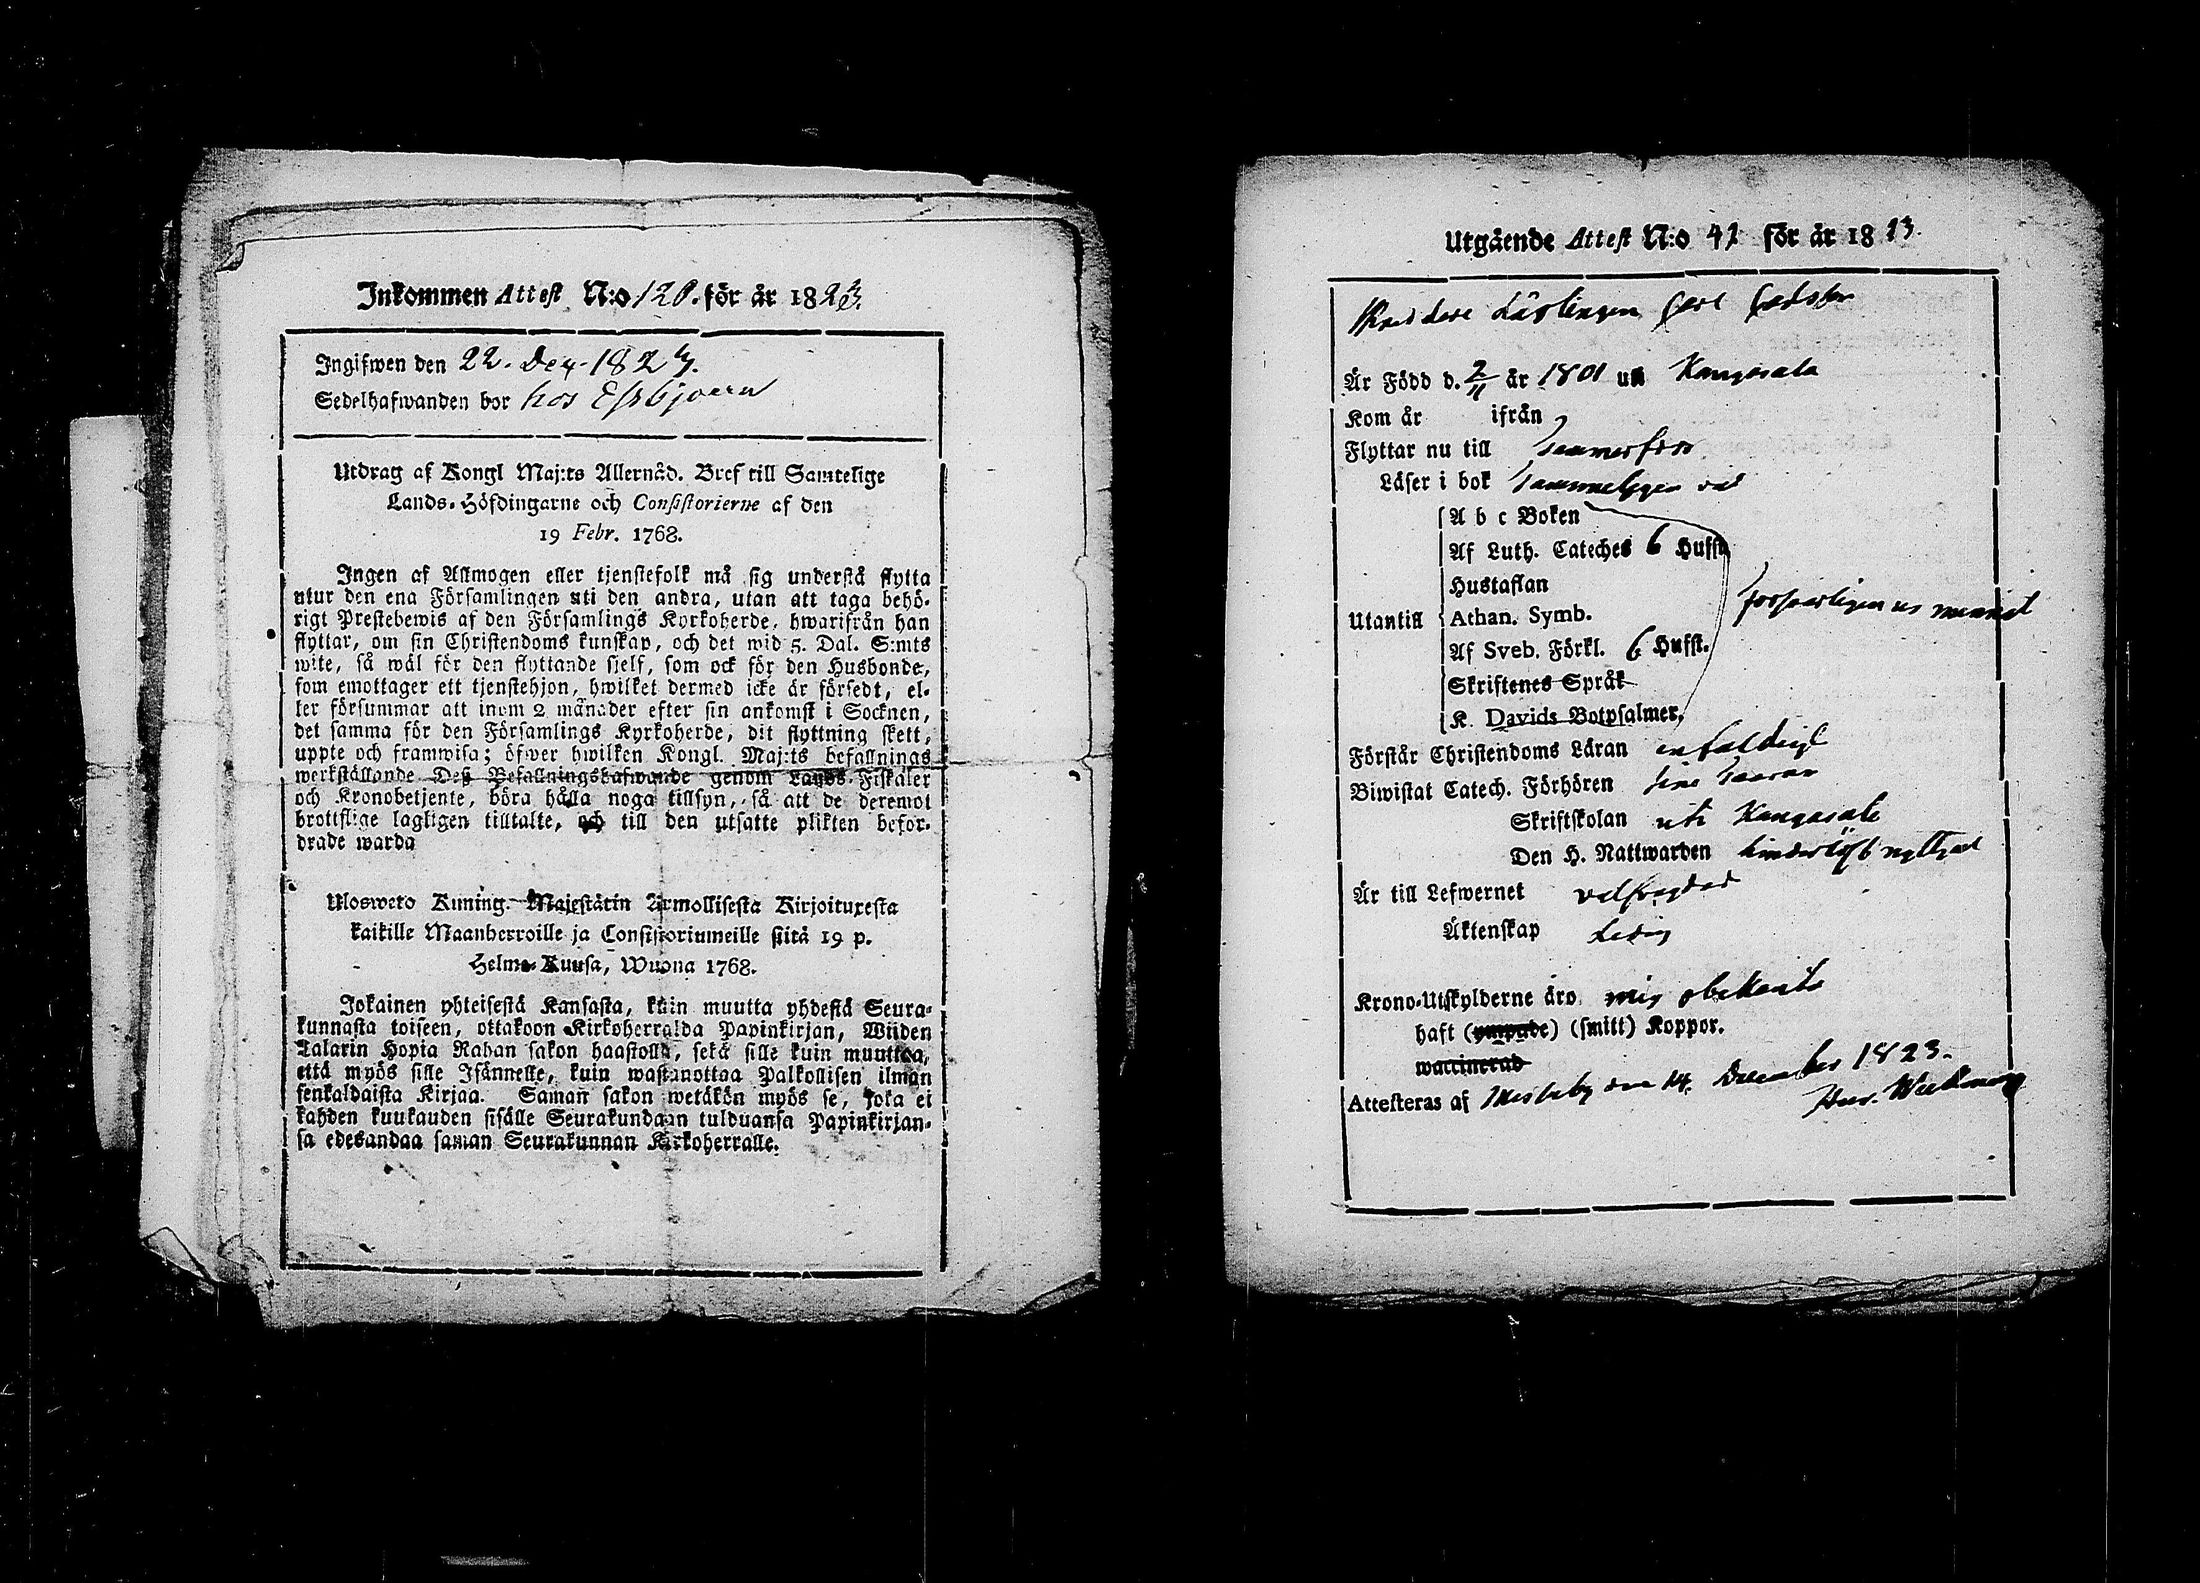 Inkommen Attest N:o 120. för år 1823.
Ingifwen den 22. Dec. 1823.
Sedelhafwanden bor hos Essbjoern
Utdrag af Kongl Maj:ts Allernåd. Bref till Samtelige
Lands-Höfdingarne och Consistorierne af den
19 Febr. 1768.
Ingen af Allmogen eller tjenstefolk må sig understå flytta
utur den ena Församlingen uti den andra, utan att taga behö-
rigt Prestebewis af den Församlings Kyrkoherde, hwarifrån han
flyttar, om sin Christendoms kunskap, och det wid 5. Dal. S:mts
wite, så wäl för den flyttande sjelf, som ock för den Husbonde,
som emottager ett tjenstehjon, hwilket dermed icke är försedt, el-
ler försummar att inom 2 månader efter sin ankomst i Socknen,
det samma för den Församlings Kyrkoherde, dit flyttning skett,
uppte och framwisa; öfwer hwilken Kongl. Maj:ts befallnings
werkställande Deß Befallningshafwande genom Lands-Fiskaler
och Kronobetjente, böra hålla noga tillsyn, så att de deremot
brottslige lagligen tilltalte, och till den utsatte plikten befor-
drade warda
Ulosweto Kuning. Majestätin Armollisesta Kirjoituxesta
kaikille Maanherroille ja Consistoriumeille siitä 19 p.
Helme-Kuusa, Wuona 1768.
Jokainen yhteisestä Kansasta, kuin muutta yhdestä Seura-
kunnasta toiseen, ottakoon Kirkoherralda Papinkirjan, Wiiden
Talarin Hopia Rahan sakon haastolla, sekä sille kuin muuttaa,
että myös sille Isännelle, kuin wastanottaa Palkollisen ilman
senkaldaista Kirjaa. Saman sakon wetäkön myös se, joka ei
kahden kuukauden sisälle Seurakundaan tulduansa Papinkirjan-
sa edesandaa saman Seurakunnan Kirkoherralle.
Utgående Attest N:o 42 för år 1823.
Lärlingen Carl
Är Född d. 2/11 år 1801 uti Kangasala
Kom år ifrån
Flyttar nu till Tammerfors
Läser i bok
A b c Boken
Af Luth. Cateches 6 Hufst.
Hustaflan
Utantill Athan. Symb. försvarligen
Af Sveb. Förkl. 6 Hufst.
Skriftenes Språk
K. Davids Botpsalmer.
Förstår Christendoms Läran enfaldigt
Biwistat Catech. Förhören sine
Skriftskolan uti Kangasala
Den H. Nattwarden hinderlöst nyttjat
Är till Lefwernet välfrägdad
Äktenskap Ledig
Krono-Utskylderne äro mig obekante
haft (ympade) (smitt) Koppor.
waccinerad
Attesteras af Messuby den 14. December 1823.